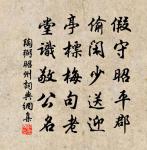 假守昭平郡
偷閑少送迎
亭標梅句老
堂識敬公名
陶弼昭州詞典網集